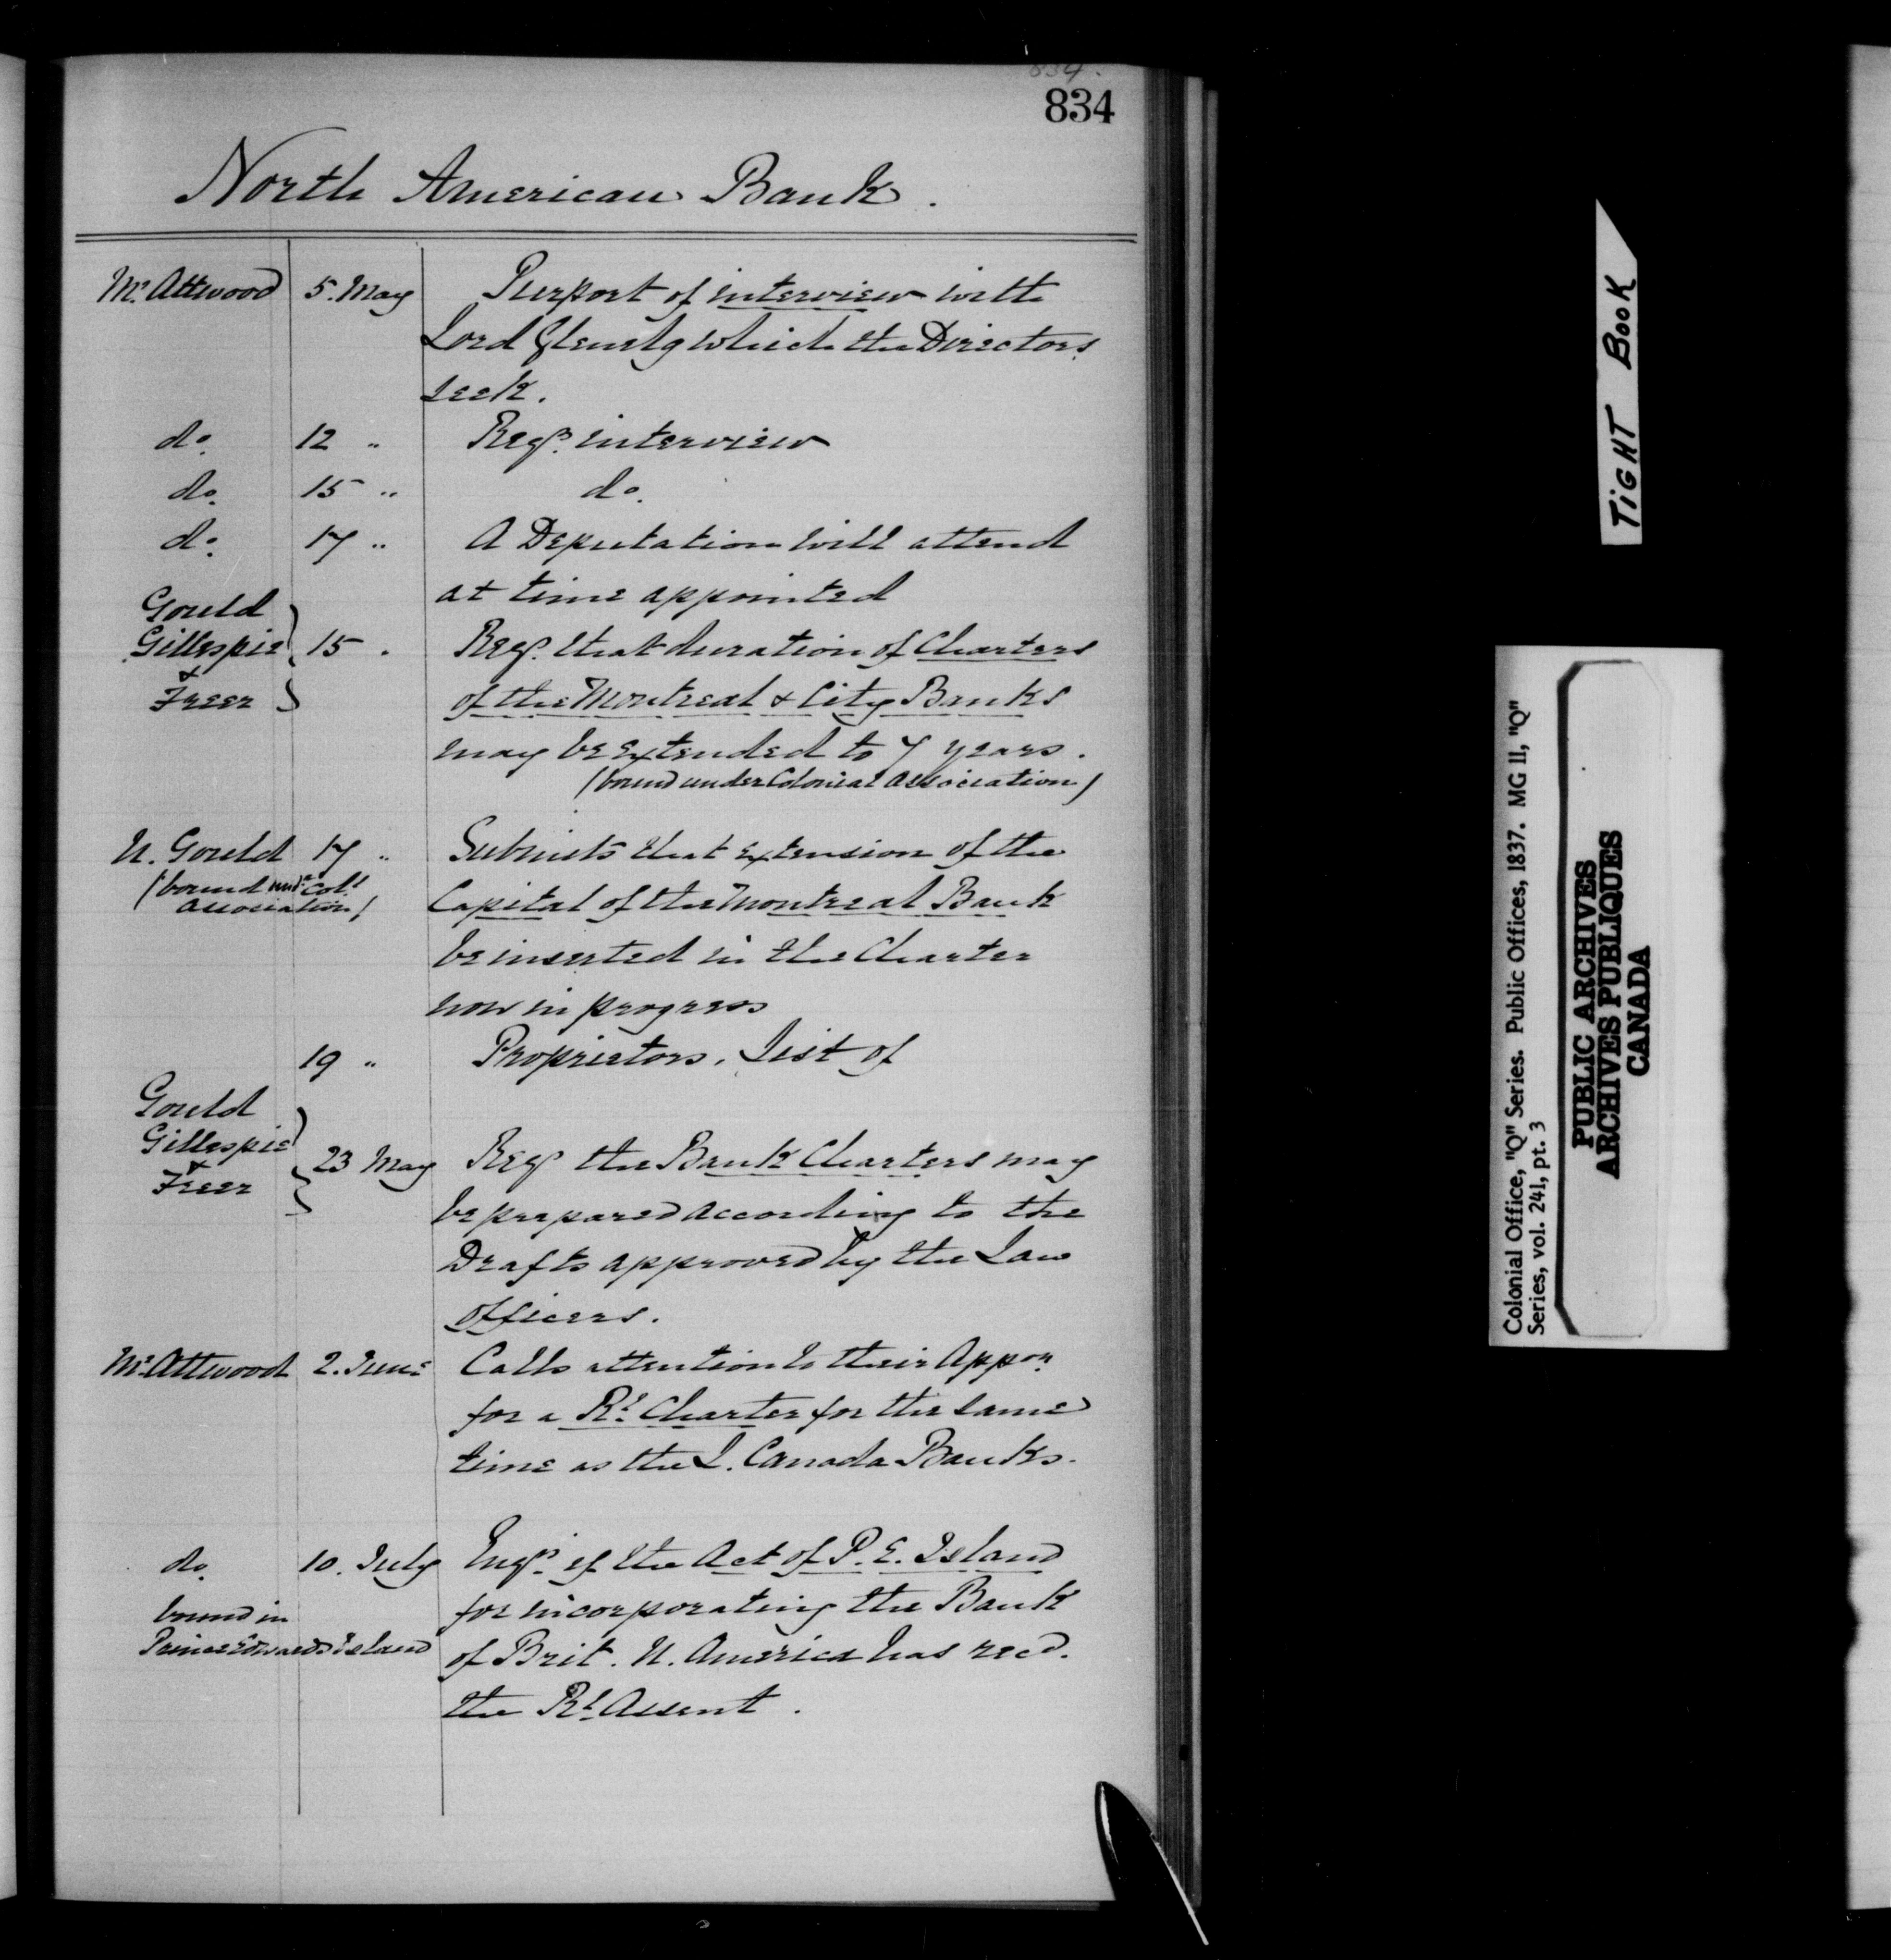 834.
834
North American Bank.
Mr. Attwood 5. May Purport of interview with
Lord Glenelg which the Directors
seek.
do. 12 " Reqg. interview
do. 15 " do.
do. 17 " A Deputation will attend
at time appointed
Gould
Gillespie 15 . Reqg. that duration of Charters
&
Freer of the Montreal & City Banks
may be extended to 7 years.
(bound under Colonial Association)
N. Gould 17 " Submits that extension of the
(bound undr. Coll.
Association) Capital of the Montreal Bank
be inserted in the Charter
now in progress
19 " Proprietors, List of
Gould
Gillespie
& 23 May Reqg. the Bank Charters may
Freer
be prepared according to the
Drafts approved by the Law
officers.
Mr. Attwood 2. June Calls attention to their Appon.
for a Rl. Charter for the same
time as the L. Canada Banks.
do. 10. July Enqg. if the Act of P. E. Island
bound in for incorporating the Bank
Prince Edwards Island of Brit. N. America has recd.
the Rl. Assent.
TIGHT BOOK
Colonial Office, "Q" Series. Public Offices, 1837. MG 11, "Q"
Series, vol. 241, pt. 3
PUBLIC ARCHIVES
ARCHIVES PUBLIQUES
CANADA